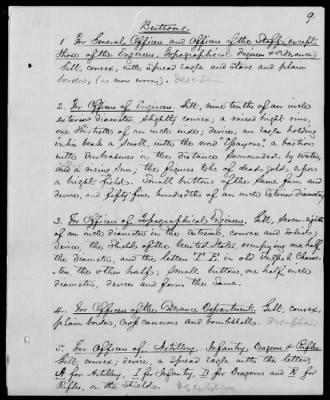 9.
Buttons.
1. For General Officers and Officers of the Staff, except
those of the Engineers, Topographical Engineers & Ordnance
Gilt, convex, with spread eagle and stars and plain
border, (as now worn).
2. For Officers of Engineers. Gilt, nine tenths of an inch
exterior diameter, slightly convex; a raised bright rim,
one thirtieth of an inch wide; device, an eagle holding
in his beak a scroll, with the word Essayons, a bastion
with embrasures in the distance surrounded by water,
and a rising sun; the figures to be of dead gold upon
a bright field. Small buttons of the same form and
device, and fifty five hundredths of an inch exterior diameter.
3. For Officers of Topographical Engineers. Gilt, seven-eighths
of an inch diameter in the extreme, convex and solid;
device, the Shield of the United States, occupying one half
the diameter, and the letters T. E. in old English Charac-
ters the other half; small buttons, one half inch
diameter, device and form the same.
4. For Officers of the Ordnance Department. Gilt, convex,
plain border, cross cannons and bombshells.
5. For Officers of Artillery, Infantry, Dragoons & Rifles,
Gilt, convex; device, a spread eagle with the letter
A for Artillery, I for Infantry, D for Dragoons and R for
Rifles, on the Shield.